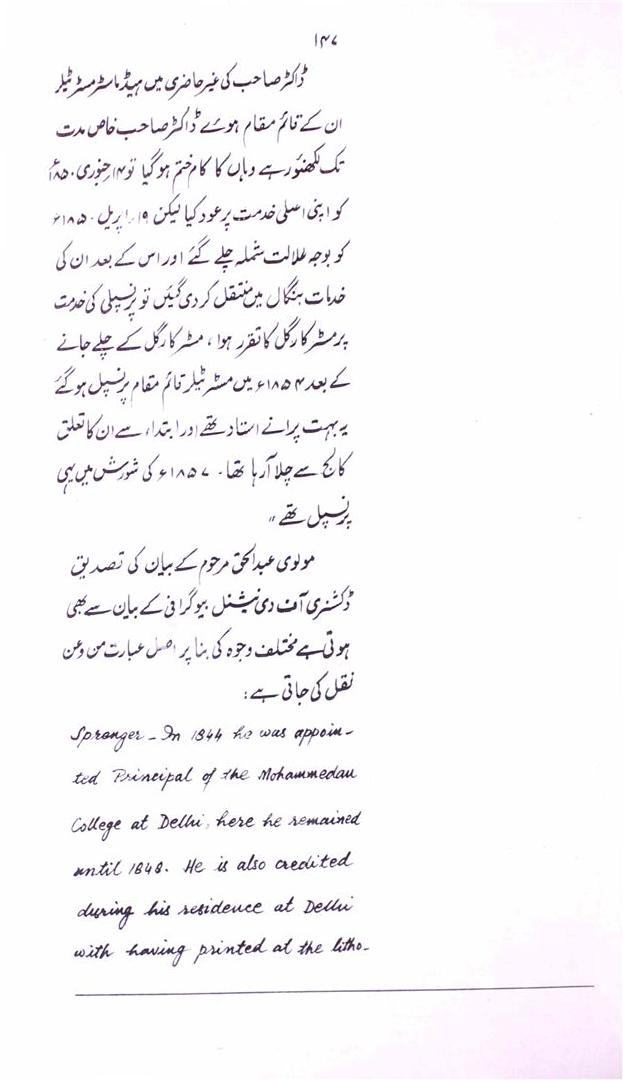 ۱۴۷
ڈاکٹر صاحب کی غیر حاضری میں ہیڈ ماسٹر مسٹر ٹیلر
ان کے قائم مقام ہوے ڈاکٹر صاحب خاص مدت
تک لکھنؤ رہے وہاں کا کام ختم ہوگیا تو ۱۴ جنوری ۱۸۵۰ء
کو اپنی اصلی خدمت پر عود کیا لیکن ۱۹ اپریل ۱۸۵۰ء
کو بوجہ علالت شملہ چلے گئے اور اس کے بعد ان کی
خدمات بنگال میں منتقل کر دی گئیں تو پرنسپلی کی خدمت
پر مسٹر کارگل کا تقرر ہوا ، مسٹر کارگل کے چلے جانے
کے بعد ۱۸۵۴ء میں مسٹر ٹیلر قائم مقام پرنسپل ہو گئے
یہ بہت پرانے استاد تھے اور ابتداء سے ان کا تعلق
کالج سے چلا آرہا تھا۔ ۱۸۵۷ء کی شورش میں یہی
پرنسپل تھے"
مولوی عبدالحق مرحوم کے بیان کی تصدیق
ڈکشنری آف دی نیشنل بیوگرافی کے بیان سے بھی
ہوتی ہے مختلف وجوہ کی بنا پر اصل عبارت من و عن
نقل کی جاتی ہے :
Sprenger - In 1844 he was appoin-
ted Principal of the Mohammedan
College at Delhi, here he remained
until 1848. He is also credited
during his residence at Delhi
with having printed at the litho-